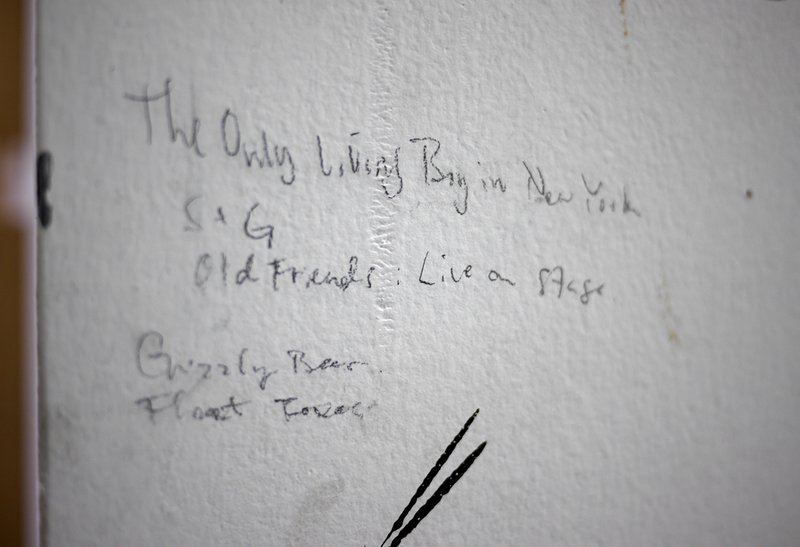 The Only Living Boy in New York
S + G
Old Friends : Live on Stage
Grizzly Bear.
Float